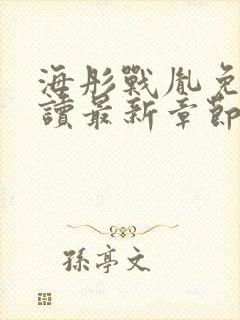 海彤戰胤免
讀最新章節
孫亭文